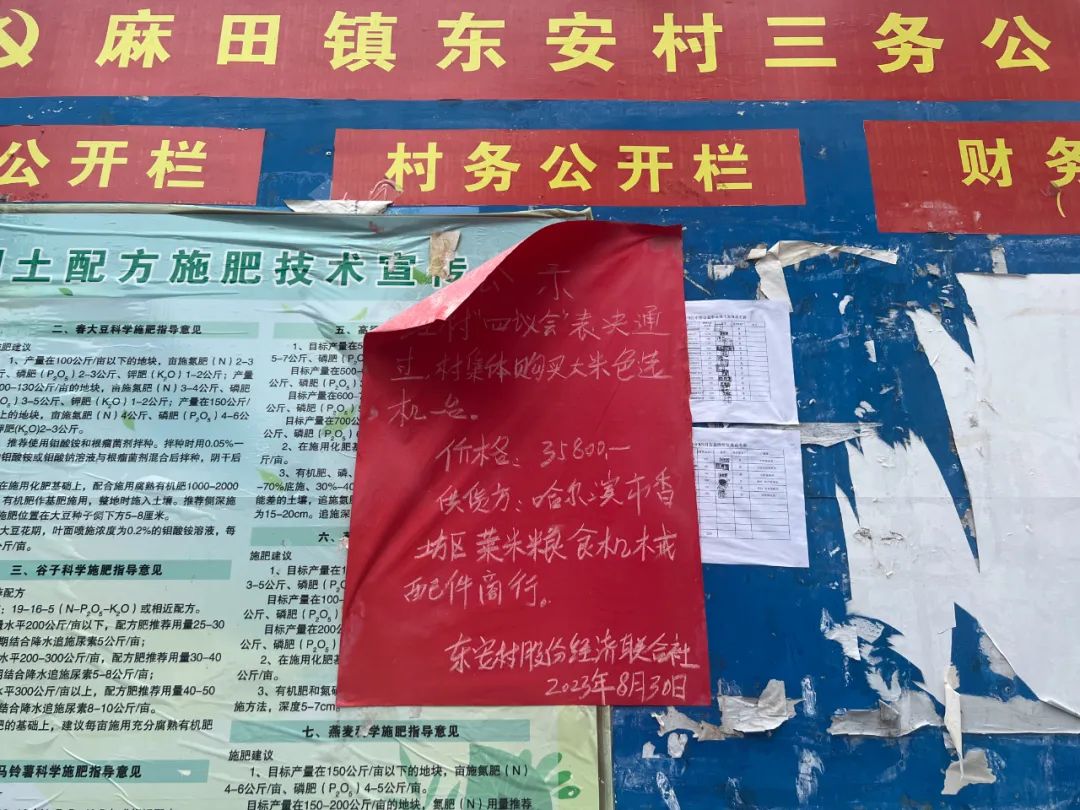 麻田镇东安村三务公
公开栏
村务公开栏
财务
土配方施肥技术宣传
二、春大豆科学施肥指导意见
肥建议
1、产量在100公斤/亩以下的地块，亩施氮肥（N）2–3
公斤、磷肥（P₂O₅）2–3公斤、钾肥（K₂O）1–2公斤；产量
00–130公斤/亩的地块，亩施氮肥（N）3–4公斤、磷肥
P₂O₅）3–5公斤、钾肥（K₂O）1–2公斤；产量在150公斤/
上的地块，亩施氮肥（N）4公斤、磷肥（P₂O₅）4–6公
钾肥(K₂O)2–3公斤。
推荐使用钼酸铵和根瘤菌剂拌种。拌种时用0.05%一
的钼酸铵或钼酸钠溶液与根瘤菌剂混合后拌种，阴干后
在施用化肥基础上，配合施用腐熟有机肥1000–2000
有机肥作基肥施用，整地时施入土壤。推荐侧深施
施肥位置在大豆种子侧下方5–8厘米。
大豆花期，叶面喷施浓度为0.2%的钼酸铵溶液，每
公斤/亩。
三、谷子科学施肥指导意见
荐配方
：19–16–5（N–P₂O₅–K₂O）或相近配方。
量水平200公斤/亩以下，配方肥推荐用量25–30
期结合降水追施尿素5公斤/亩；
水平200–300公斤/亩，配方肥推荐用量30–40
结合降水追施尿素5–8公斤/亩；
水平300公斤/亩以上，配方肥推荐用量40–50
结合降水追施尿素8–10公斤/亩。
肥的基础上，建议每亩施用充分腐熟有机肥
马铃薯科学施肥指导意见
五、高
施肥建议
1、目标产量在
5–7公斤、磷肥（P₂O
目标产量在500–
公斤、磷肥（P₂O₅）
目标产量在600–7
公斤、磷肥（P₂O₅）5
目标产量700公
公斤、磷肥（P₂O₅）6
2、在施用化肥基
斤/亩。
3、有机肥、磷、
–70%底施、30%–40
能差的土壤，追施氮肥
为15–20cm。追施深
六、
施肥建议
1、目标产量1
3–5公斤、磷肥（P₂O
目标产量在100–
公斤、磷肥（P₂O₅）
目标产量在200公
公斤、磷肥（P₂O₅）
2、在施用化肥基
公斤/亩。
3、有机肥和氮
施方法，深度5–7cm。
七、燕麦科学施肥指导意见
施肥建议
1、目标产量在150公斤/亩以下的地块，亩施氮肥（N）
4–6公斤、磷肥（P₂O₅）4–5公斤。
目标产量在150–200公斤/亩的地块，氮肥（N）用量推荐
公示
村“四议会”表决通
过，村集体购买大米色选
机一台。
价格：35800,—
供货方：哈尔滨市香
坊区菜米粮食机械
配件商行。
东安村股份经济联合社
2023年8月30日